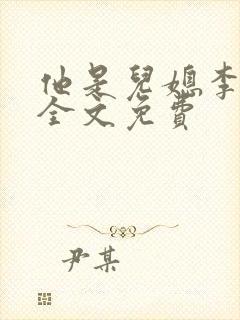 他是兒媳李
全文免費
尹某